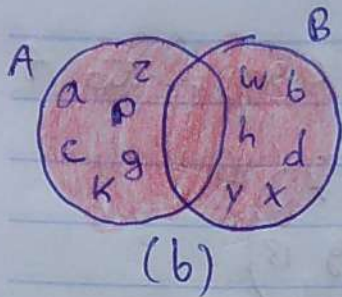 A
B
a r p c g k
w b h d y x
(b)